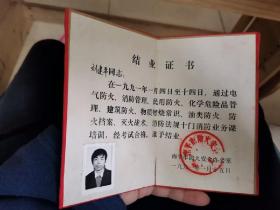 结业证书
刘建华同志:
在一九九一年一月四日至十四日,通过电
气防火、消防管理、民用防火、化学危险品管
理、建筑防火、物质燃烧常识、油类防火、防
火档案、灭火战术、消防法规十门消防业务课
培训,经考试合格,准予结业。
南
防火安全委员会
一九九一年一月十五日